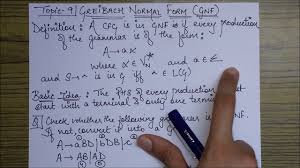 Topic-9/ GREIBACH NORMAL FORM (GNF)
Definition: A CFG is in GNF if every production
of the grammar is of the form:
A → aX
where α ∈ V_N* and a ∈ Σ
and S → ^ is in G if ^ ∈ L(G)
Basic Idea: The RHS of every production must
start with a terminal & only one term
Q| Check whether the following grammar is GNF.
If not, convert it into
A → aBD|bDB|c
A → AB|AD